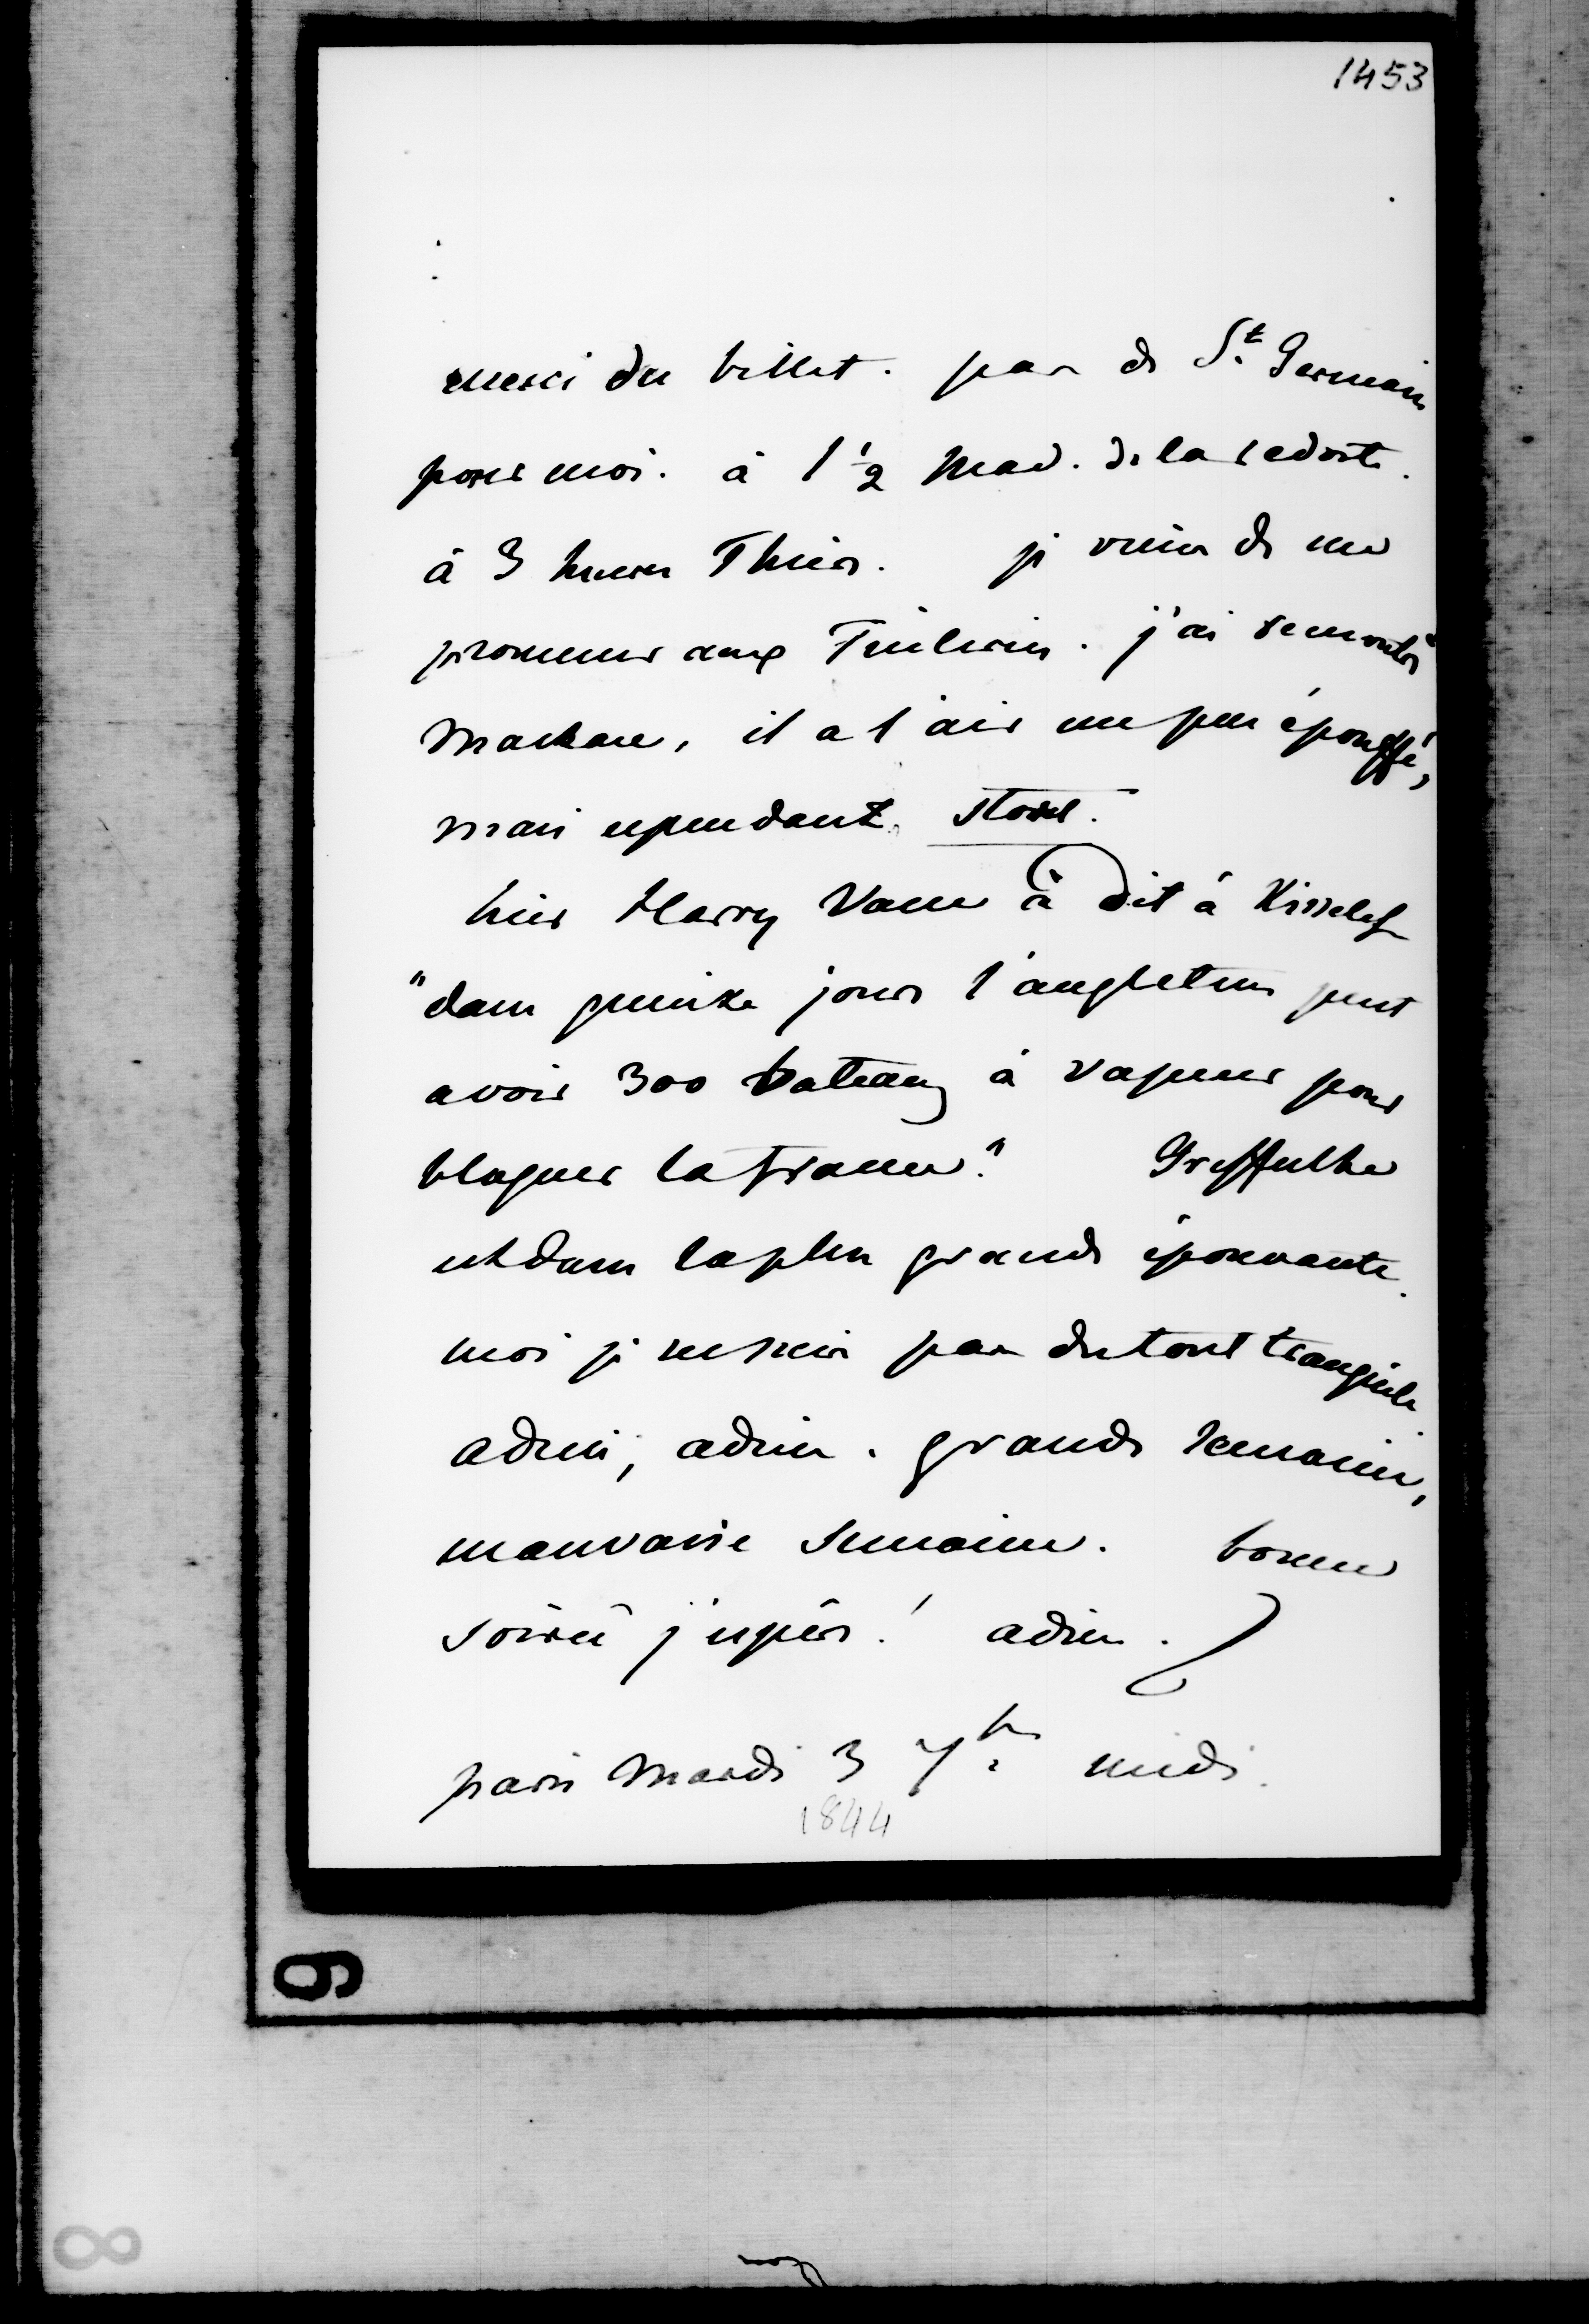 1453
merci du billet. pas de St. Germain
pour moi. à 1 ½ Mad. de la redorte.
à 3 heures Thiers. je viens de me
promener aux Tuileries. j'ai remontré
Mackau, il a l'air un peu épouffé,
mais cependant, stout.
hier Harry Vane à dit à Kisselef
"dans quinze jours l'angleterre peut
avoir 300 bateaux à vapeur pour
bloquer la france." Greffulhe
est dans la plus grande épouvante.
moi je ne suis pas du tout tranquille
adieu, adieu. grande semaine,
mauvaise semaine. bonne
soirée j'espère! adieu.
paris Mardi 3 7bre midi.
1844
9
8